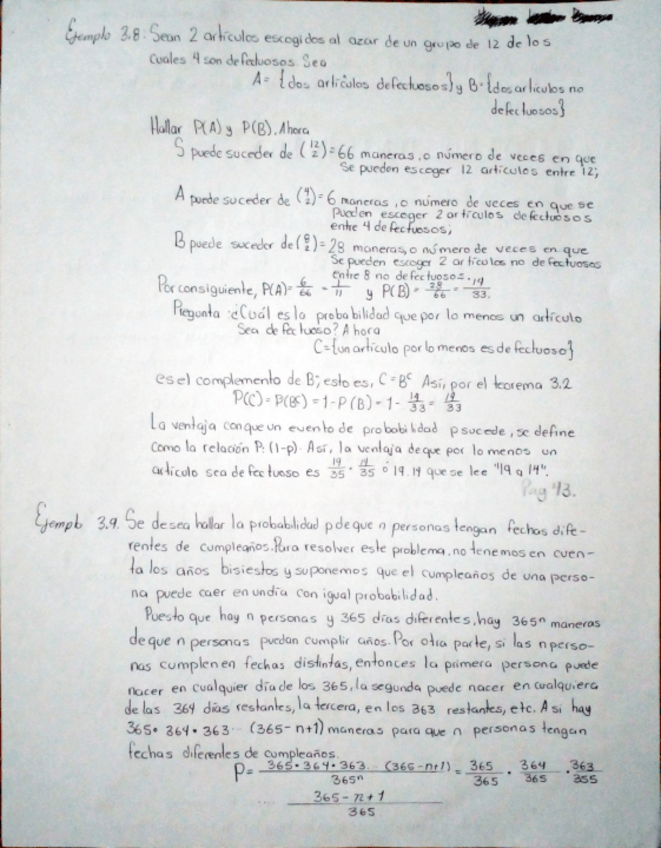 Ejemplo 3.8: Sean 2 artículos escogidos al azar de un grupo de 12 de los
cuales 4 son defectuosos. Sea
A= {dos artículos defectuosos} y B={dos artículos no
defectuosos}
Hallar P(A) y P(B). Ahora
S puede suceder de (12 2)=66 maneras, o número de veces en que
se pueden escoger 12 artículos entre 12;
A puede suceder de (4 2)=6 maneras, o número de veces en que se
pueden escoger 2 artículos defectuosos
entre 4 defectuosos;
B puede suceder de (8 2)=28 maneras, o número de veces en que
se pueden escoger 2 artículos no defectuosos
entre 8 no defectuosos.
Por consiguiente, P(A)= 6/66 = 1/11 y P(B)= 28/66 = 14/33.
Pregunta: ¿Cuál es la probabilidad que por lo menos un artículo
sea defectuoso? Ahora
C={un artículo por lo menos es defectuoso}
es el complemento de B; esto es, C=Bᶜ Así, por el teorema 3.2
P(C)=P(Bᶜ)=1-P(B)=1- 14/33 = 19/33
La ventaja con que un evento de probabilidad p sucede, se define
como la relación P: (1-p). Así, la ventaja de que por lo menos un
artículo sea defectuoso es 19/35 · 14/35 ó 19.14 que se lee "19 a 14".
Pag 43.
Ejemplo 3.9. Se desea hallar la probabilidad p de que n personas tengan fechas dife-
rentes de cumpleaños. Para resolver este problema, no tenemos en cuen-
ta los años bisiestos y suponemos que el cumpleaños de una perso-
na puede caer en un día con igual probabilidad.
Puesto que hay n personas y 365 días diferentes, hay 365ⁿ maneras
de que n personas puedan cumplir años. Por otra parte, si las n perso-
nas cumplen en fechas distintas, entonces la primera persona puede
nacer en cualquier día de los 365, la segunda puede nacer en cualquiera
de las 364 días restantes, la tercera, en los 363 restantes, etc. Así hay
365• 364• 363 ... (365-n+1) maneras para que n personas tengan
fechas diferentes de cumpleaños.
P= 365•364•363... (365-n+1)/365ⁿ = 365/365 · 364/365 · 363/355
365-n+1/365